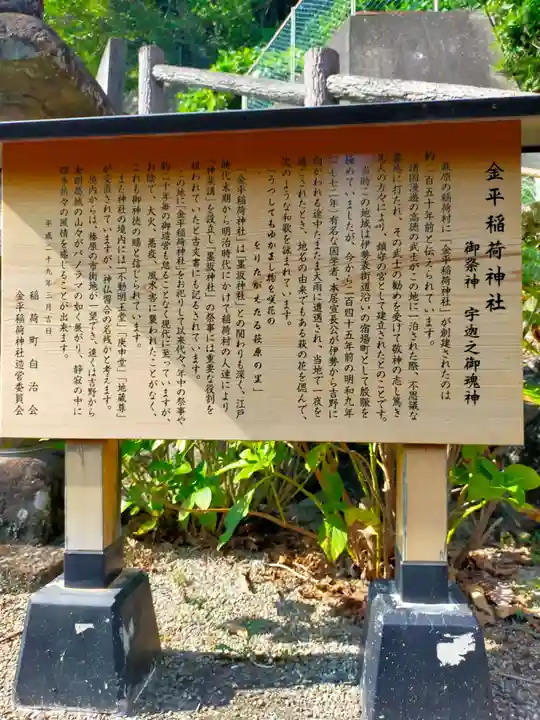 金平稲荷神社
御祭神 宇迦之御魂神
萩原の稲荷村に「金平稲荷神社」が創建されたのは
約二百五十年前と伝えられています。
諸国漫遊の高徳の武士がこの地に一泊された際、不思議な
霊感に打たれ、その武士の勧めを受けて敬神の志し篤き
先人の方々により、鎮守の宮として建立されたとのことです。
当時この地域は伊勢表街道沿いの宿場町として殷賑を
極めていましたが、今から二百四十五年前の明和九年
(一七七二年)有名な国学者、本居宣長公が伊勢から吉野に
向かわれる途中たまたま大雨に遭遇され、当地で一夜を
過ごされたとき、地名の由来でもある萩の花を偲んで、
次のような和歌を詠まれています。
「うつしてもゆかまし物を咲花の
をりたがえたる萩原の里」
「金平稲荷神社」は「墨坂神社」との関わりも深く、江戸
時代末期から明治時代にかけて稲荷村の人達により
「神楽講」を設立し「墨坂神社」の祭事には重要な役割を
担われていたと古文書にも記るされています。
この地に「金平稲荷神社」をお祀りして以来代々、年中の祭事や
約二十年毎の御造営も怠ることなく現代に至っていますが、
お陰で、大火、悪疫、風水害に襲われたことがなく、
これも御神徳の賜と信じられています。
また神社の境内には「不動明王堂」「庚申堂」「地蔵尊」
が安置されていますが、神仏習合の名残かと考えます。
境内からは、榛原の市街地が一望でき、遠くは吉野から
金剛葛城の山々がパノラマの如く展がり、静寂の中に
四季折々の風情を感じることが出来ます。
平成二十九年三月吉日
稲荷町自治会
金平稲荷神社造営委員会